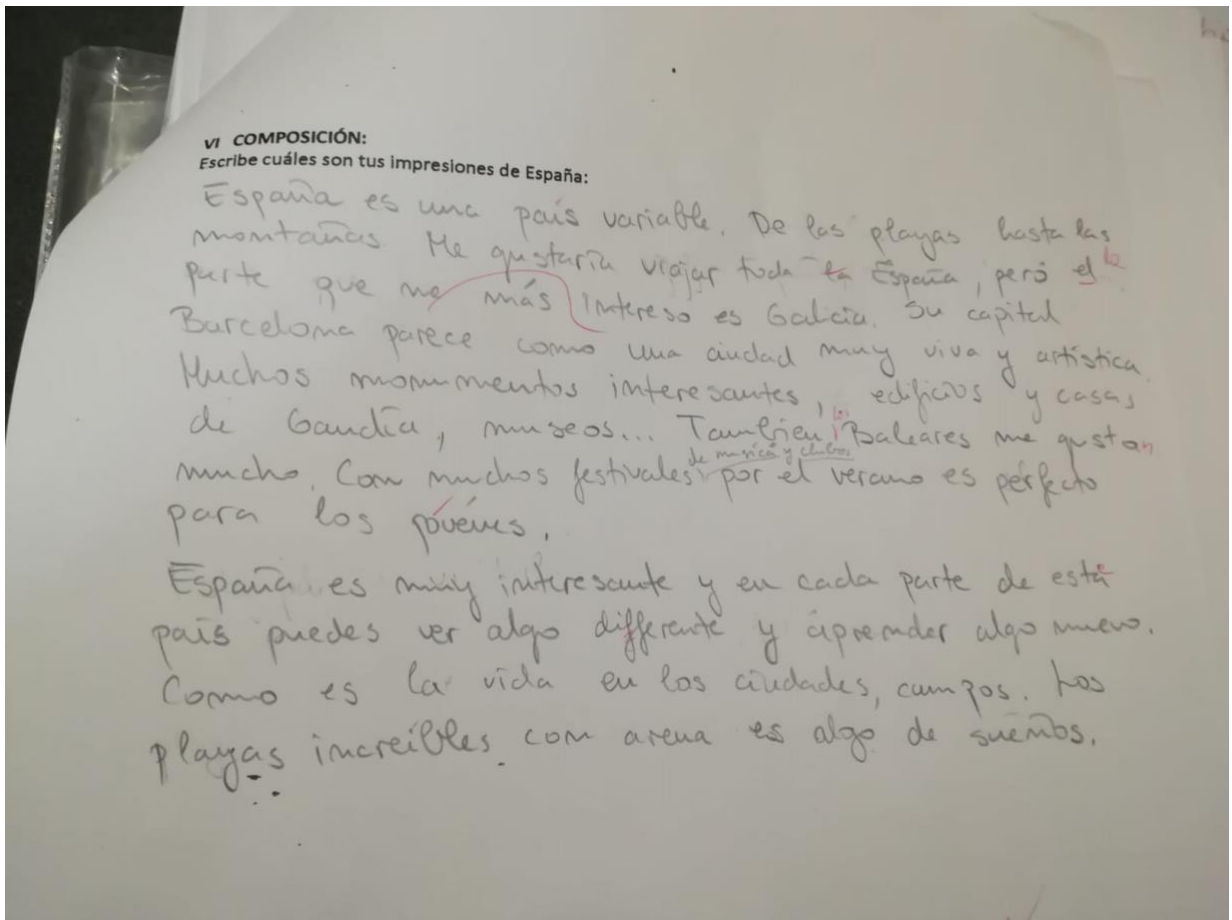 VI COMPOSICIÓN:
Escribe cuáles son tus impresiones de España:
España es una país variable. De las playas hasta las
montañas. Me gustaría viajar toda la España, peró el la
parte que me más intereso es Galicia. Su capital
Barcelona parece como una ciudad muy viva y artística.
Muchos monumentos interesantes, edificios y casas
de Gaudía, museos... Tambien las Baleares me gustan
mucho. Con muchos festivales de musica y clubos por el verano es perfecto
para los jóvenes.
España es muy interesante y en cada parte de este
país puedes ver algo differente y aprender algo nuevo.
Como es la vida en las ciudades, campos. Las
playas increíbles con arena es algo de sueños.